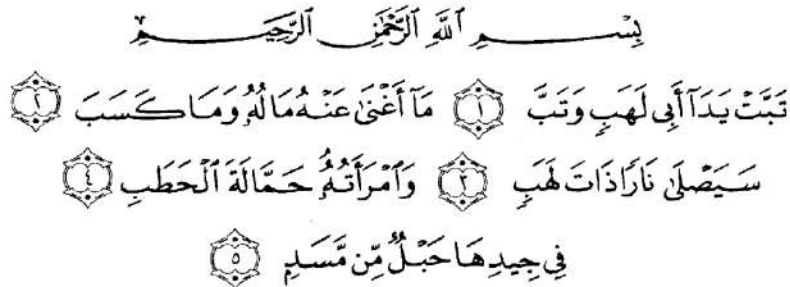 بِسْمِ ٱللَّهِ ٱلرَّحْمَٰنِ ٱلرَّحِيمِ
تَبَّتْ يَدَآ أَبِى لَهَبٍ وَتَبَّ ١ مَآ أَغْنَىٰ عَنْهُ مَالُهُۥ وَمَا كَسَبَ ٢
سَيَصْلَىٰ نَارًا ذَاتَ لَهَبٍ ٣ وَٱمْرَأَتُهُۥ حَمَّالَةَ ٱلْحَطَبِ ٤
فِى جِيدِهَا حَبْلٌ مِّن مَّسَدٍۭ ٥